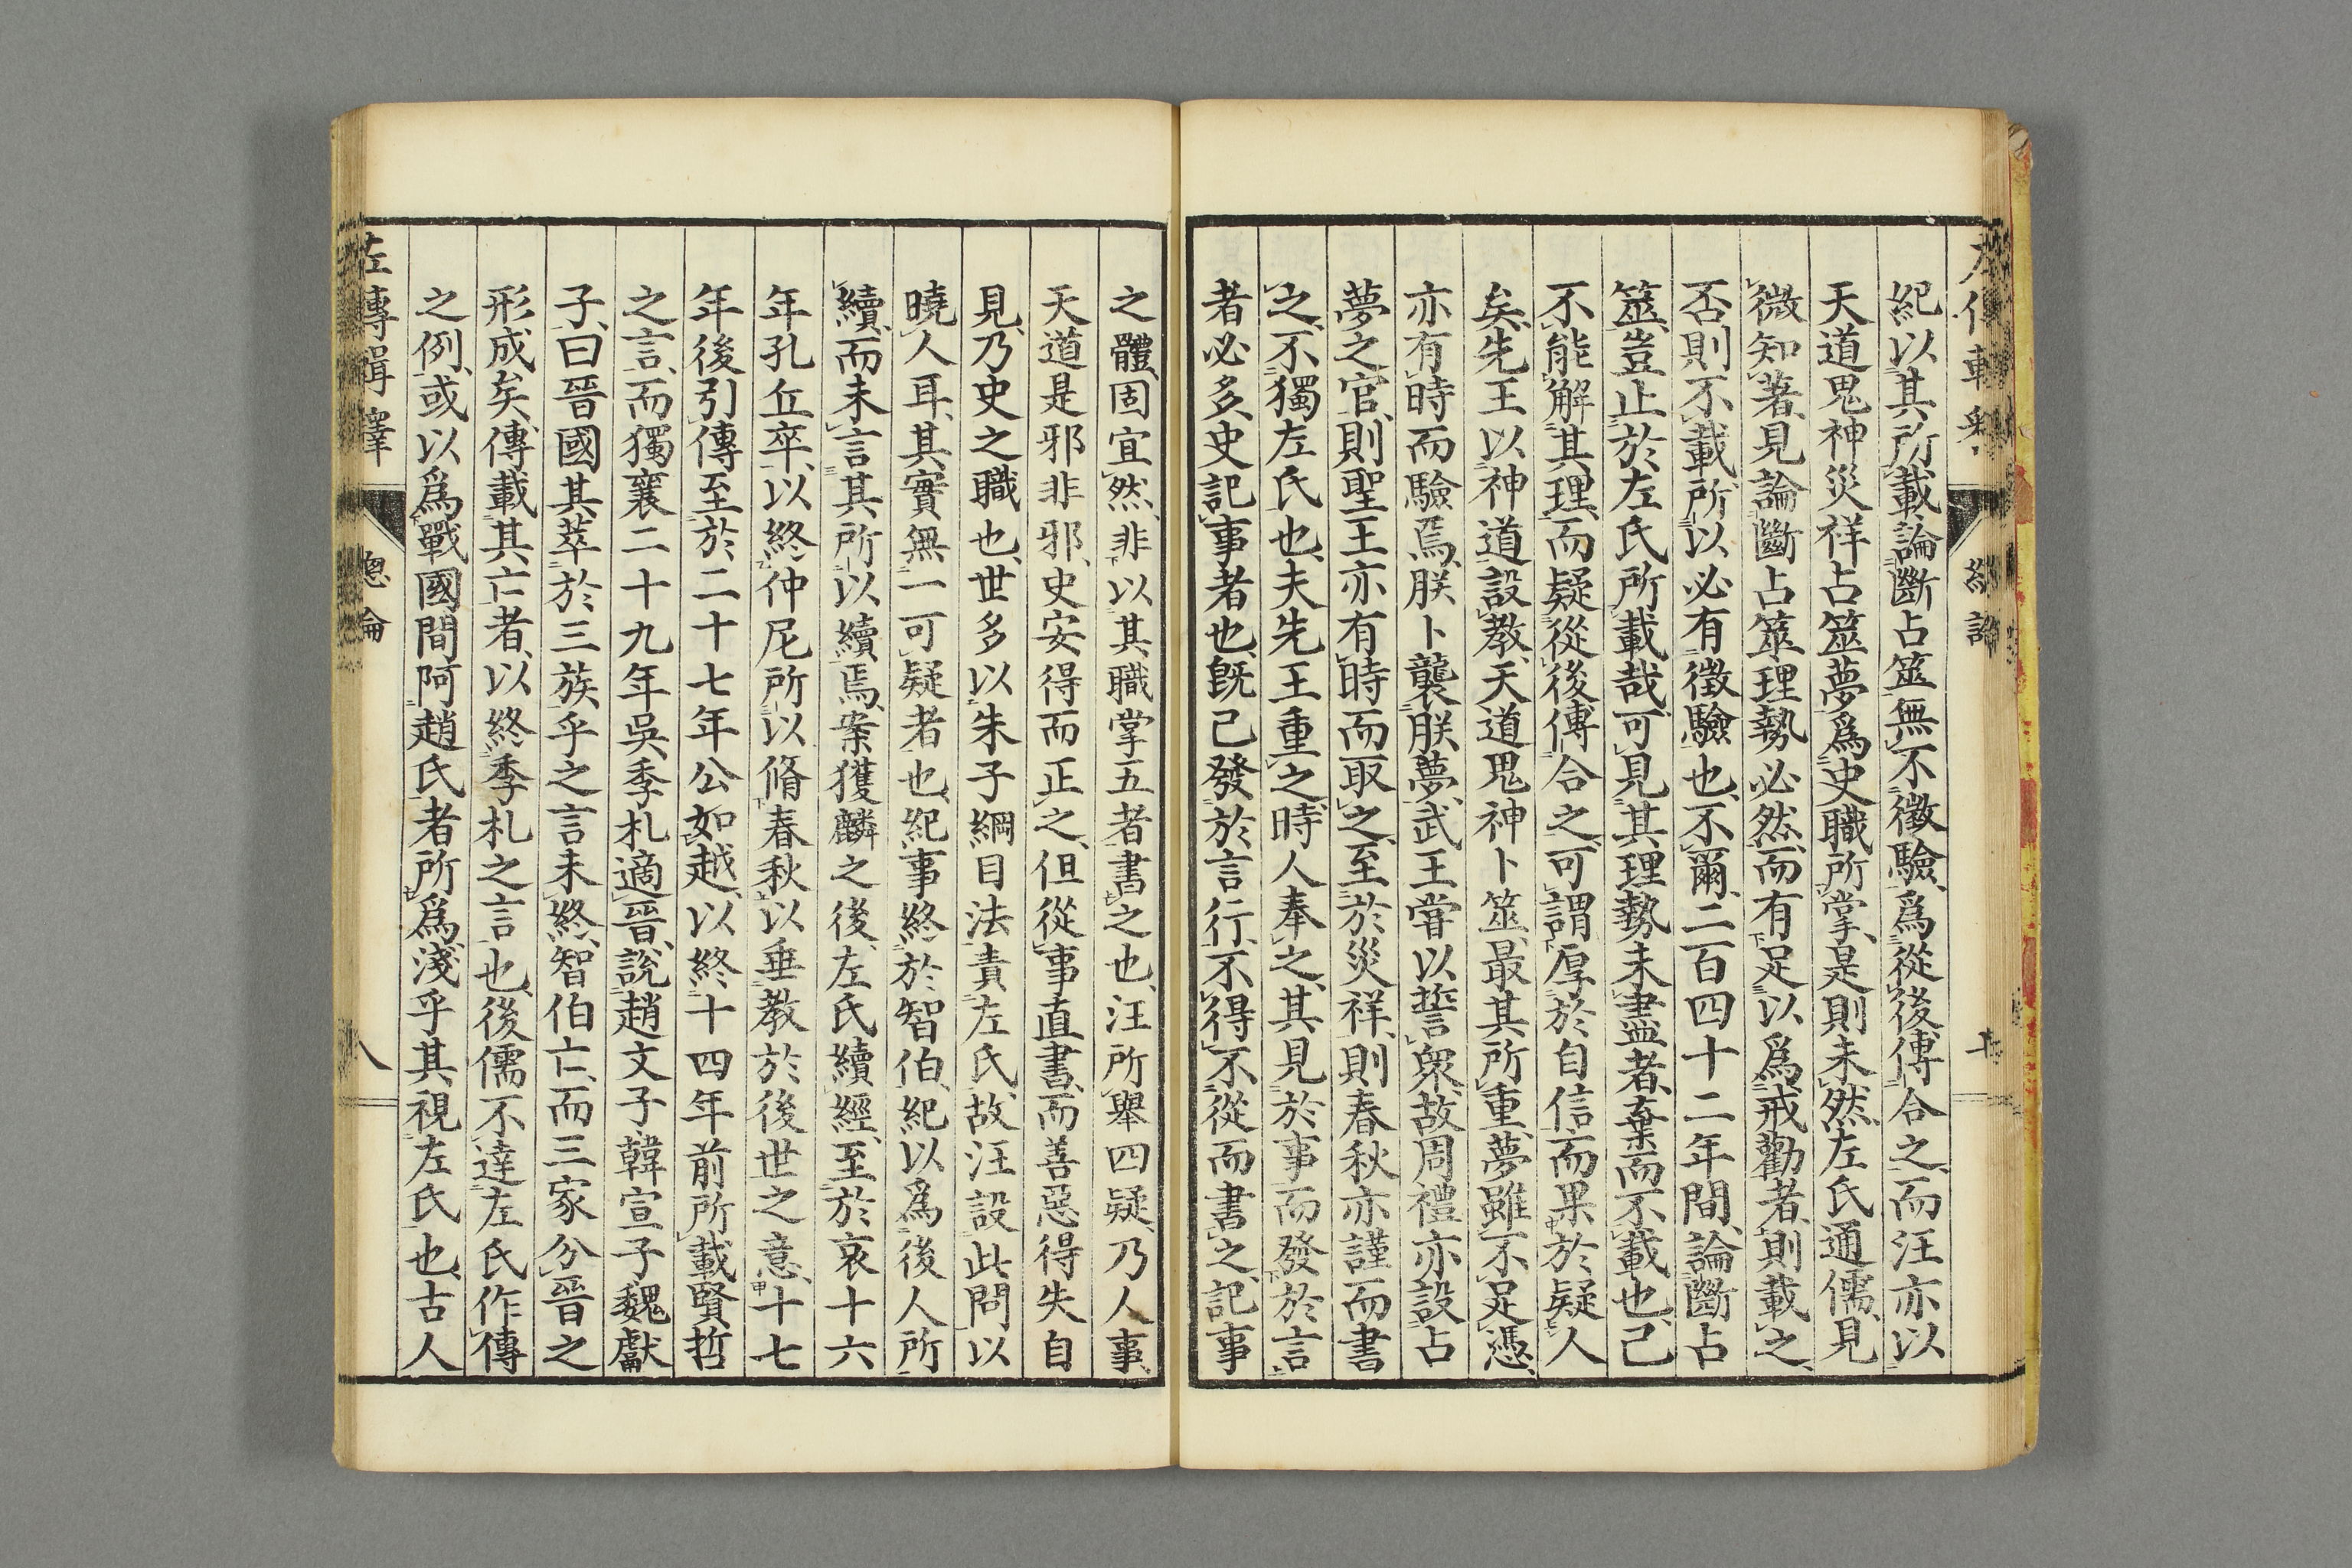 紀以其所載論斷占筮無不徵驗爲從後傅合之、而汪亦以
天道鬼神災祥占筮夢爲史職所掌、是則未然、左氏通儒、見
微知著、見論斷占筮理勢必然、而有足以爲戒勸者、則載之、
否則不載、所以必有徵驗也、不爾、二百四十二年間、論斷占
筮、豈止於左氏所載哉、可見其理勢未盡者、棄而不載也、己
不能解其理、而疑從後傅合之、可謂厚於自信而果於疑人
矣、先王以神道設教、天道鬼神卜筮、最其所重、夢雖不足憑、
亦有時而驗焉、朕卜襲朕夢、武王嘗以誓衆、故周禮亦設占
夢之官、則聖王亦有時而取之、至於災祥、則春秋亦謹而書
之、不獨左氏也、夫先王重之、時人奉之、其見於事而發於言
者必多、史記事者也、既已發於言行、不得不從而書之、記事
之體、固宜然、非以其職掌五者書之也、汪所舉四疑、乃人事、
天道是邪非邪、史安得而正之、但從事直書、而善惡得失自
見、乃史之職也、世多以朱子綱目法責左氏、故汪設此問以
曉人耳、其實無一可疑者也、紀事終於智伯、紀以爲後人所
續、而未言其所以續焉、案獲麟之後、左氏續經、至於哀十六
年孔丘卒、以終仲尼所以脩春秋以垂教於後世之意、十七
年後引傳至於二十七年公如越、以終十四年前所載賢哲
之言、而獨襄二十九年吳季札適晉、說趙文子韓宣子魏獻
子、曰晉國其萃於三族乎之言未終、智伯亡、而三家分晉之
形成矣、傳載其亡者、以終季札之言也、後儒不達左氏作傳
之例、或以爲戰國間阿趙氏者所爲、淺乎其視左氏也、古人
左傳輯釋 總論 八